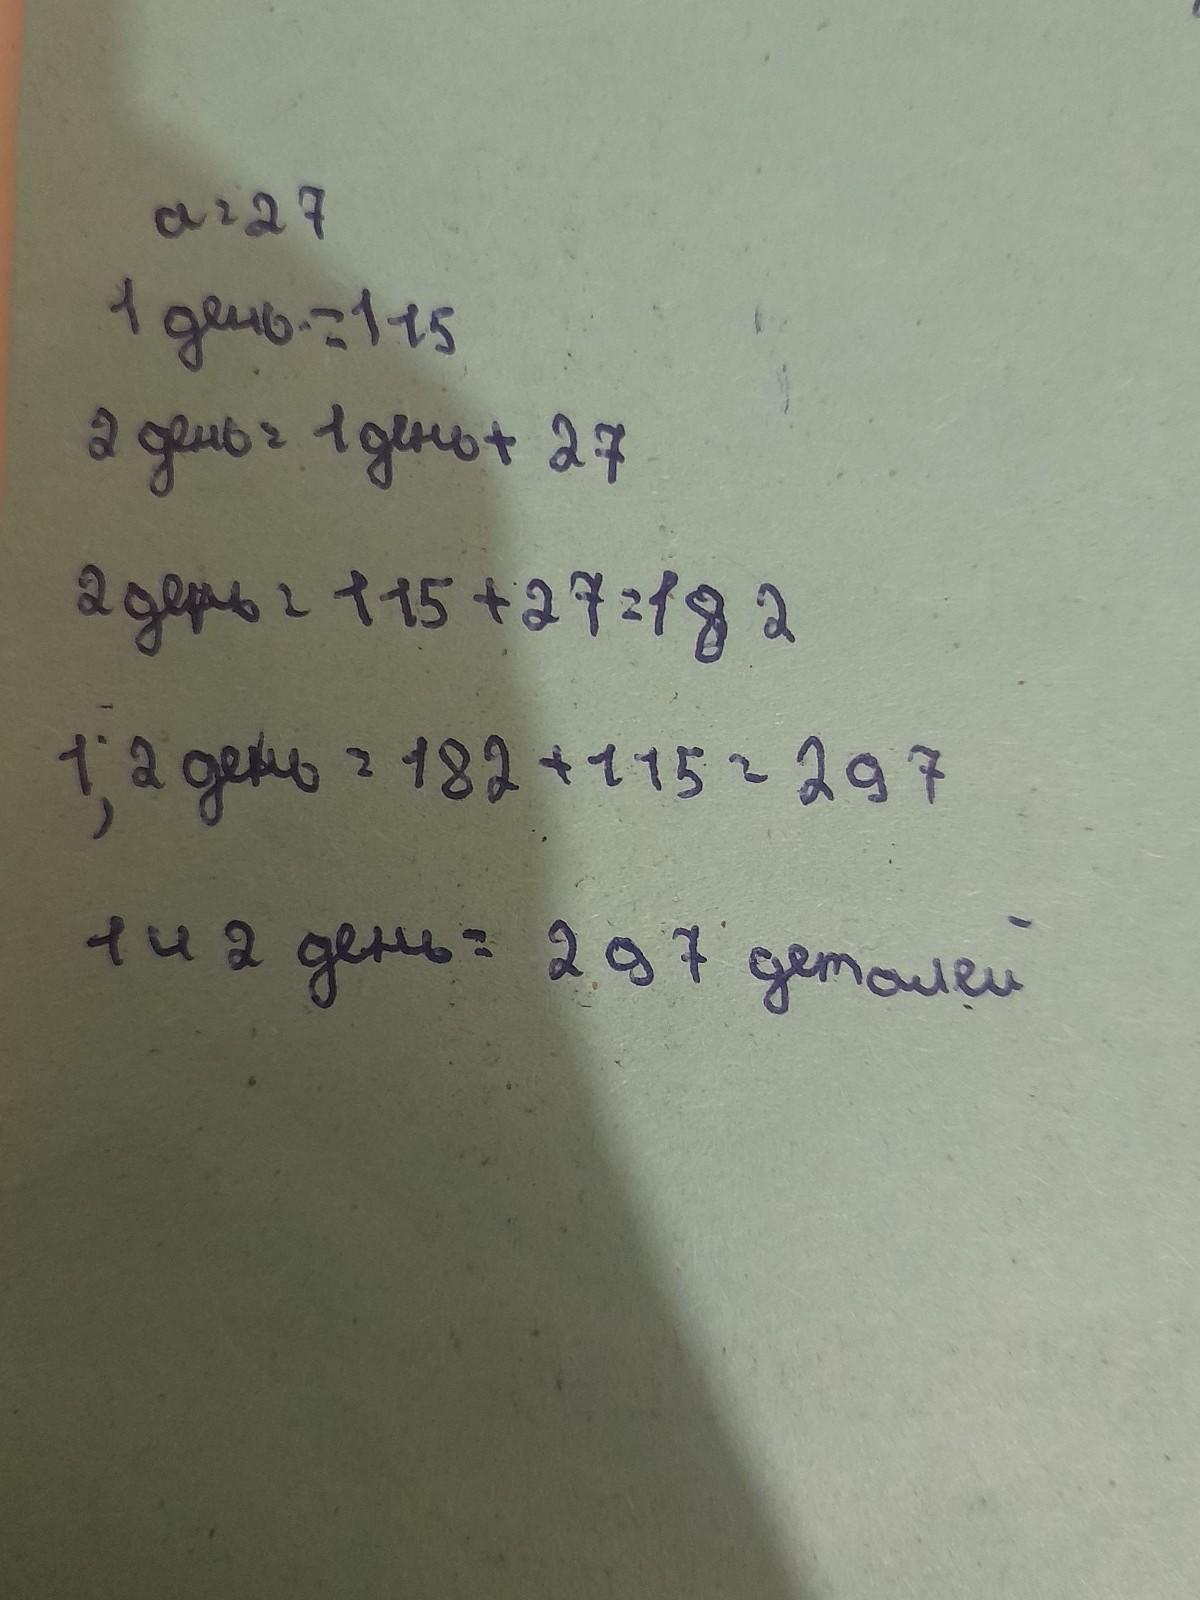 a=27
1 день=115
2 день= 1 день+ 27
2 день= 115+27=182
1; 2 день = 182+115= 297
1 и 2 день= 297 деталей